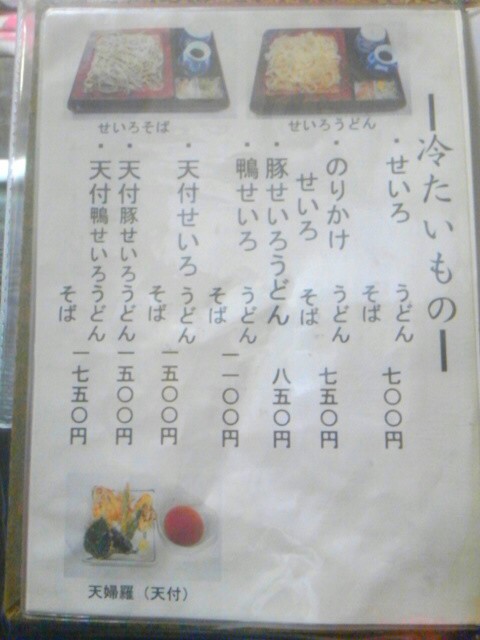 せいろそば
せいろうどん
ー冷たいものー
・せいろ うどん 七〇〇円
そば
・のりかけ うどん 七五〇円
せいろ そば
・豚せいろうどん 八五〇円
・鴨せいろ うどん 一一〇〇円
そば
・天付せいろ うどん 一五〇〇円
そば
・天付豚せいろうどん 一五〇〇円
・天付鴨せいろうどん 一七五〇円
そば
天婦羅（天付）